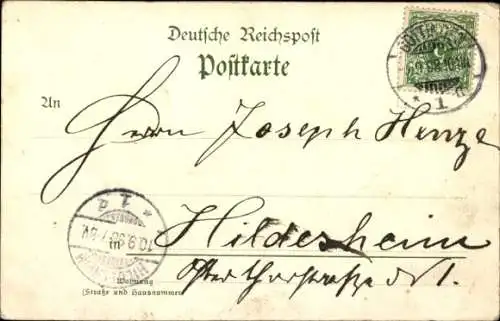 Deutsche Reichspost
Postkarte
An
Herrn Joseph Henze
in Hildesheim
Osterthorstraße N 1.
Wohnung
(Straße und Hausnummer)
1
* 1. d
10.9.98
HILDESHEIM